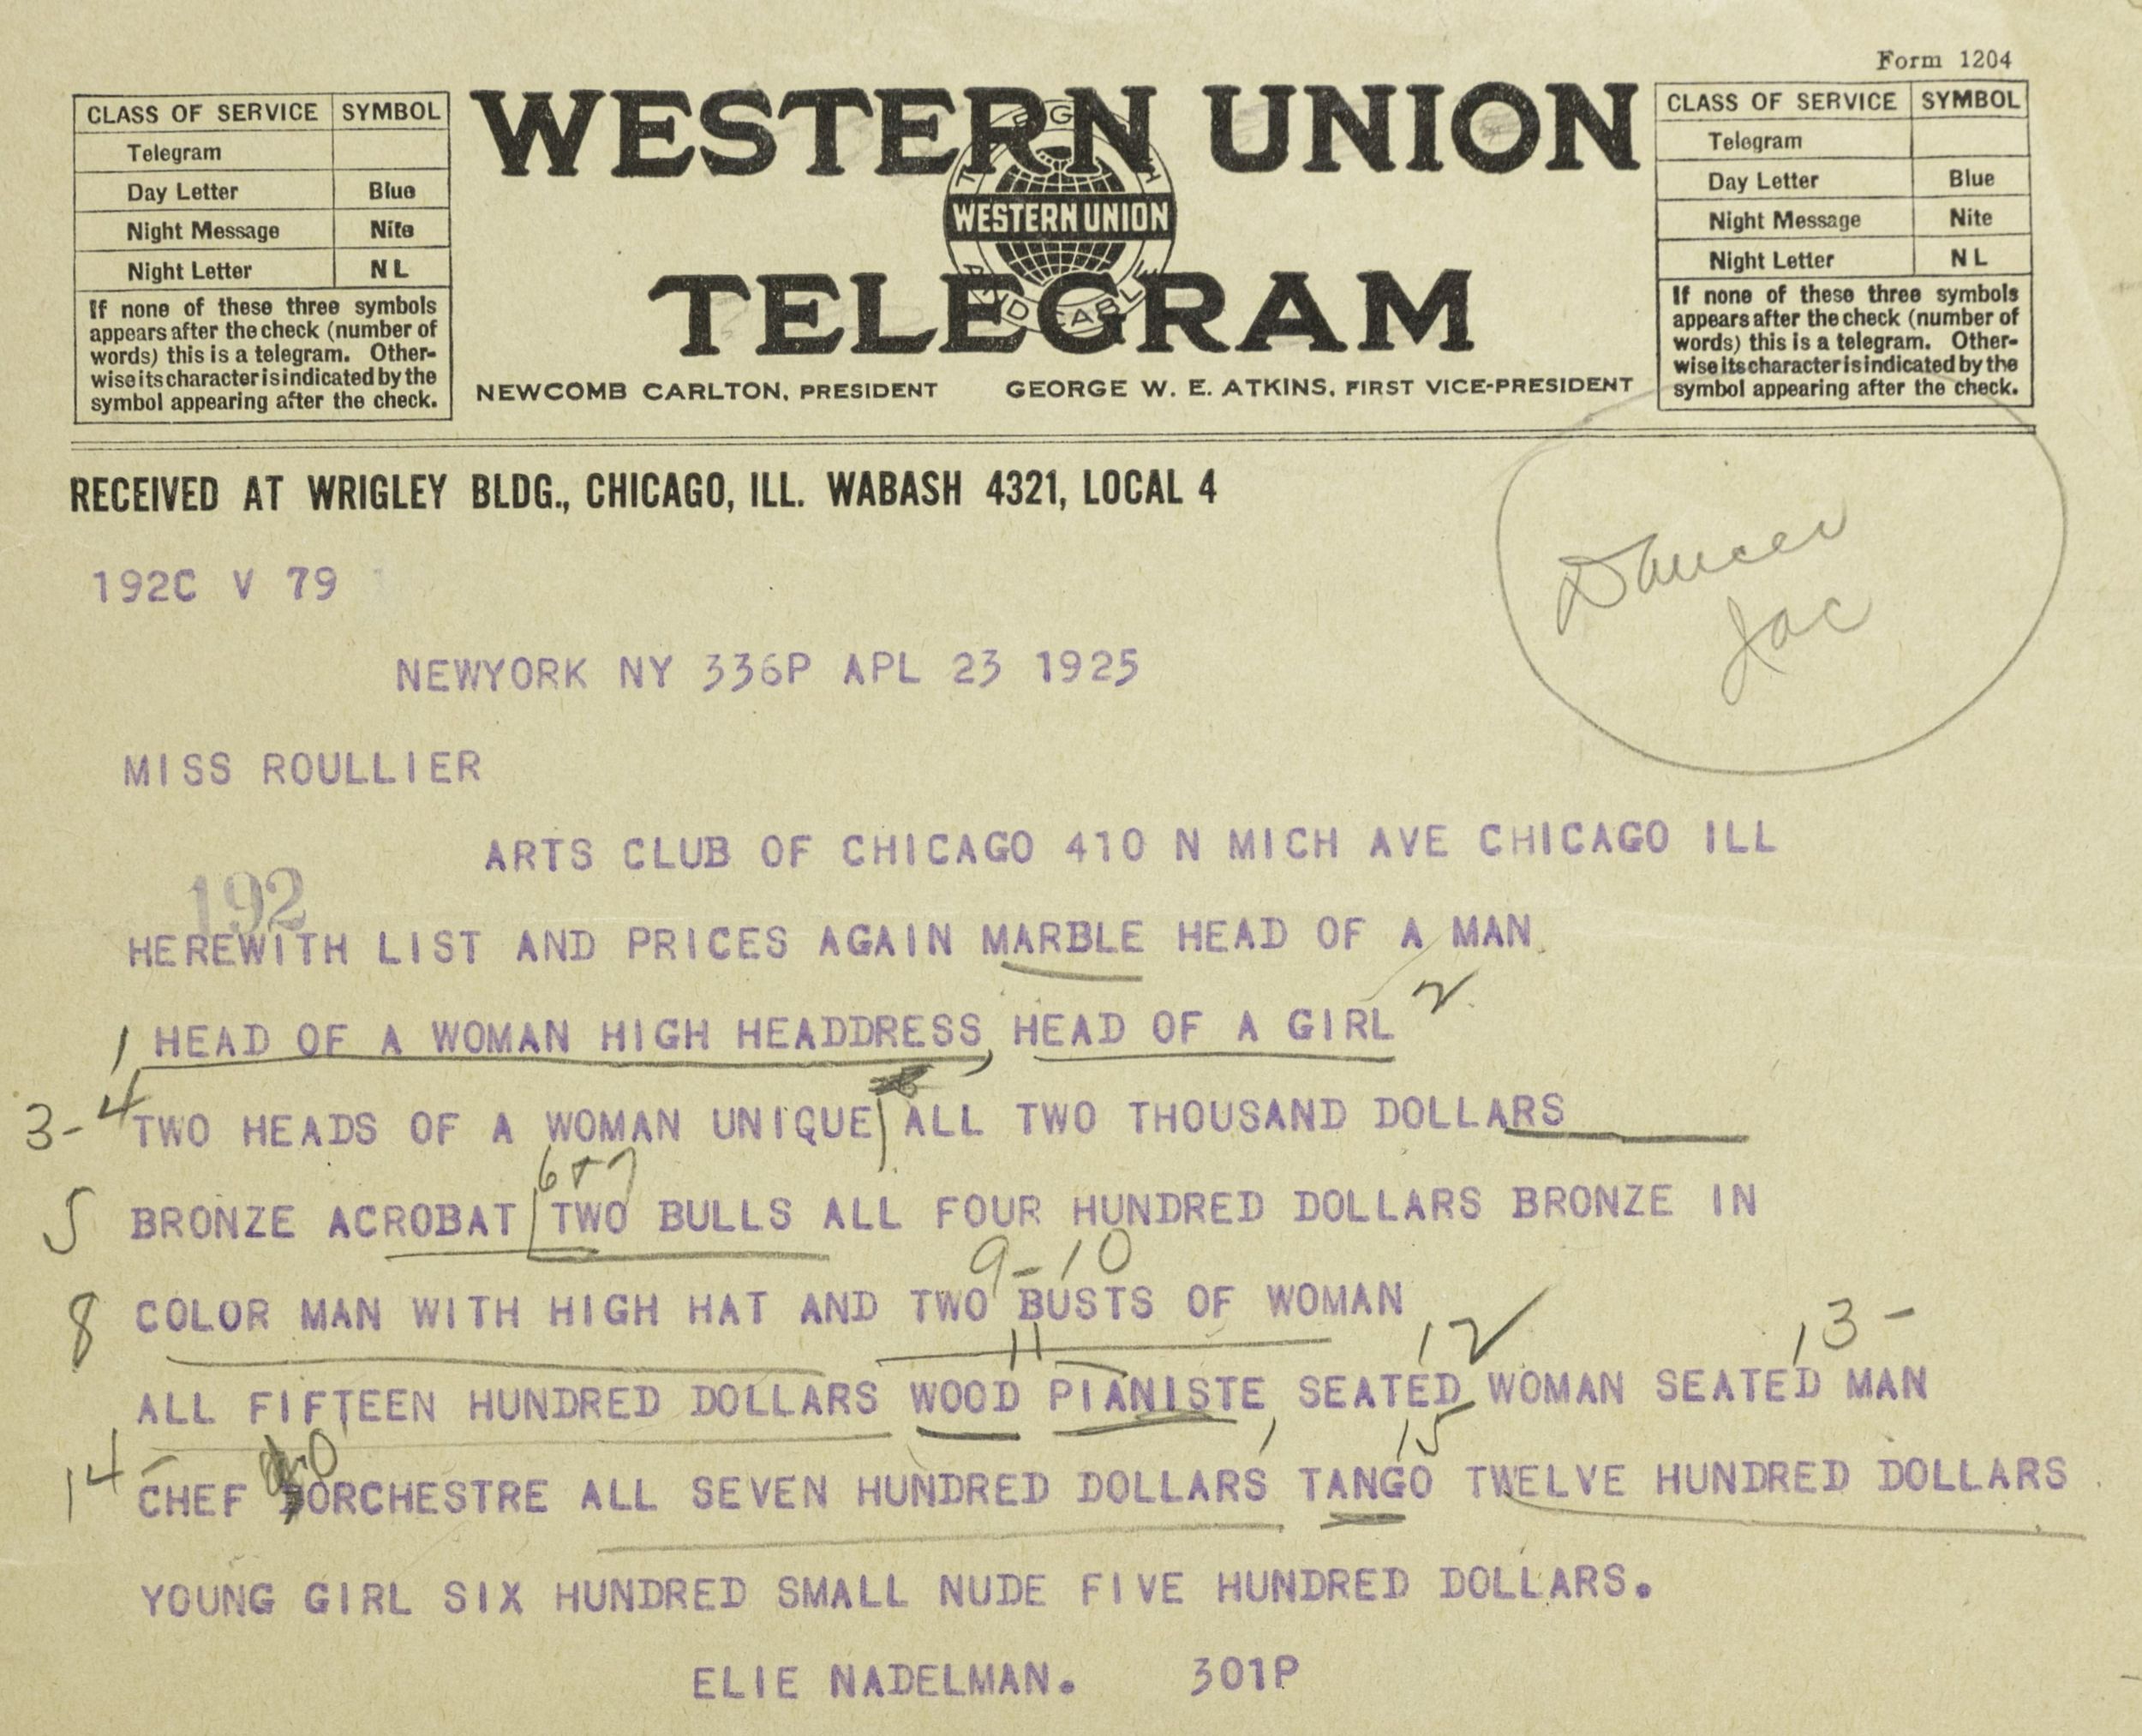 Form 1204
CLASS OF SERVICE SYMBOL
Telegram
Day Letter Blue
Night Message Nite
Night Letter N L
If none of these three symbols
appears after the check (number of
words) this is a telegram. Other-
wise its character is indicated by the
symbol appearing after the check.
WESTERN UNION
WESTERN UNION
TELEGRAM
NEWCOMB CARLTON, PRESIDENT GEORGE W. E. ATKINS, FIRST VICE-PRESIDENT
CLASS OF SERVICE SYMBOL
Telegram
Day Letter Blue
Night Message Nite
Night Letter N L
If none of these three symbols
appears after the check (number of
words) this is a telegram. Other-
wise its character is indicated by the
symbol appearing after the check.
RECEIVED AT WRIGLEY BLDG., CHICAGO, ILL. WABASH 4321, LOCAL 4
Dancer
192C V 79
NEWYORK NY 336P APL 23 1925
MISS ROULLIER
ARTS CLUB OF CHICAGO 410 N MICH AVE CHICAGO ILL
192
HEREWITH LIST AND PRICES AGAIN MARBLE HEAD OF A MAN
1 HEAD OF A WOMAN HIGH HEADDRESS, HEAD OF A GIRL 2
3-4 TWO HEADS OF A WOMAN UNIQUE ALL TWO THOUSAND DOLLARS
6+7
5 BRONZE ACROBAT TWO BULLS ALL FOUR HUNDRED DOLLARS BRONZE IN
9-10
8 COLOR MAN WITH HIGH HAT AND TWO BUSTS OF WOMAN
11 12 13-
ALL FIFTEEN HUNDRED DOLLARS WOOD PIANISTE, SEATED WOMAN SEATED MAN
15
14 CHEF ORCHESTRE ALL SEVEN HUNDRED DOLLARS TANGO TWELVE HUNDRED DOLLARS
YOUNG GIRL SIX HUNDRED SMALL NUDE FIVE HUNDRED DOLLARS.
ELIE NADELMAN. 301P